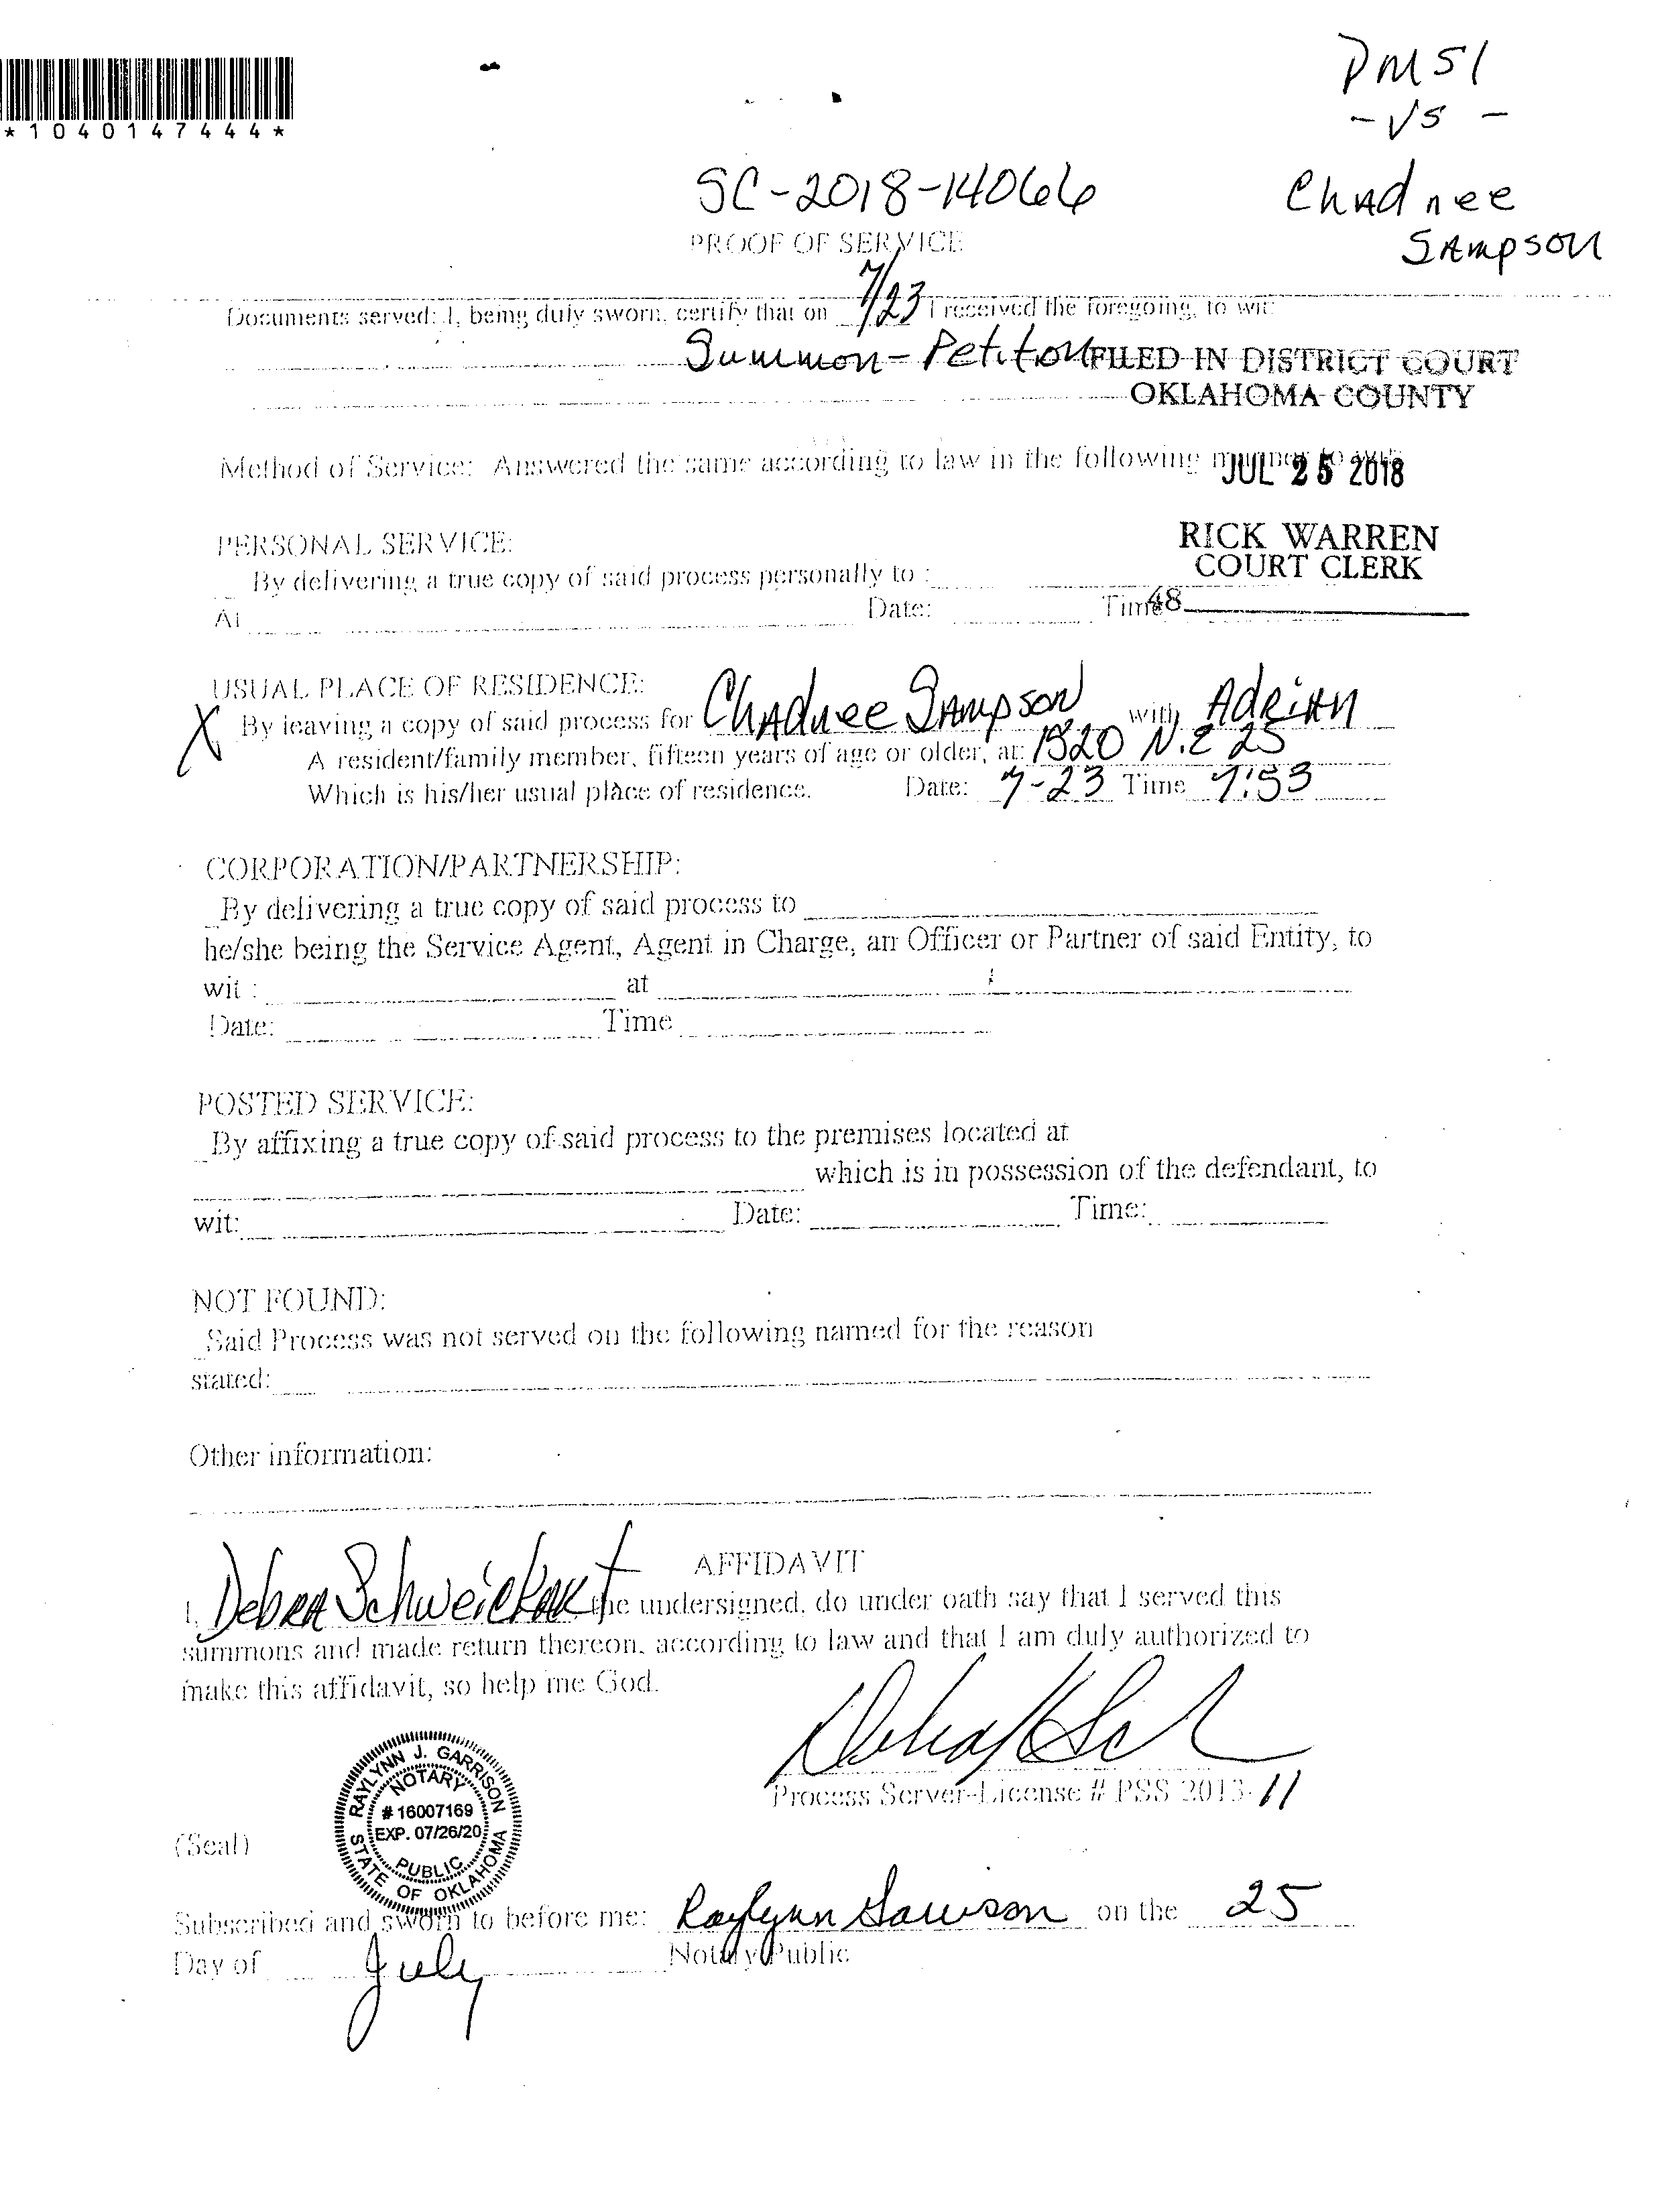 *1040147444*
PMSI
-VS-
Chadnee
Sampson
SC-2018-14066
PROOF OF SERVICE
Documents served: I, being duly sworn, certify that on 7/23 I received the foregoing, to wit:
Summon - Petition
FILED IN DISTRICT COURT
OKLAHOMA COUNTY
Method of Service: Answered the same according to law in the following manner to wit:
JUL 25 2018
RICK WARREN
COURT CLERK
48
PERSONAL SERVICE:
By delivering a true copy of said process personally to :
At Date: Time
USUAL PLACE OF RESIDENCE:
X By leaving a copy of said process for Chadnee Sampson with Adrian
A resident/family member, fifteen years of age or older, at: N.E 25
Which is his/her usual place of residence. Date: 7-23 Time 7:53
CORPORATION/PARTNERSHIP:
By delivering a true copy of said process to
he/she being the Service Agent, Agent in Charge, an Officer or Partner of said Entity, to
wit : at
Date: Time
POSTED SERVICE:
By affixing a true copy of said process to the premises located at
which is in possession of the defendant, to
wit: Date: Time:
NOT FOUND:
Said Process was not served on the following named for the reason
stated:
Other information:
AFFIDAVIT
I, Debra Schweickart the undersigned, do under oath say that I served this
summons and made return thereon, according to law and that I am duly authorized to
make this affidavit, so help me God.
Process Server-License # PSS 2013-11
(Seal)
RAYLYNN J. GARRISON
NOTARY
# 16007169
EXP. 07/26/20
PUBLIC
STATE OF OKLAHOMA
Subscribed and sworn to before me: Raylynn Garrison on the 25
Day of July Notary Public